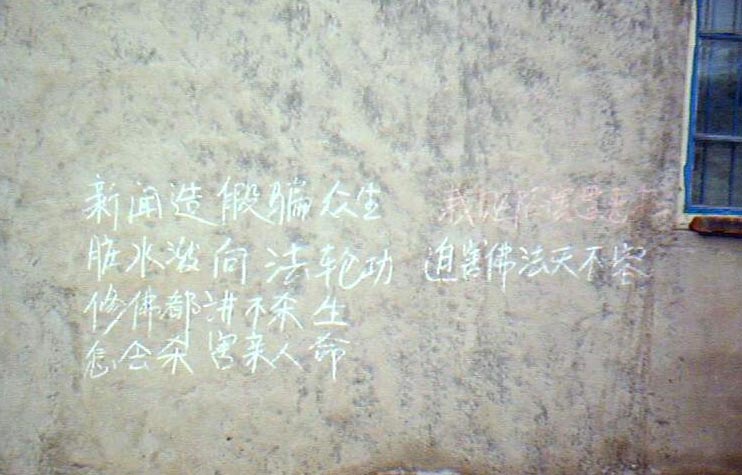 新闻造假骗众生 栽赃陷害
脏水泼向法轮功 迫害佛法天不容
修佛都讲不杀生
怎会杀害亲人命